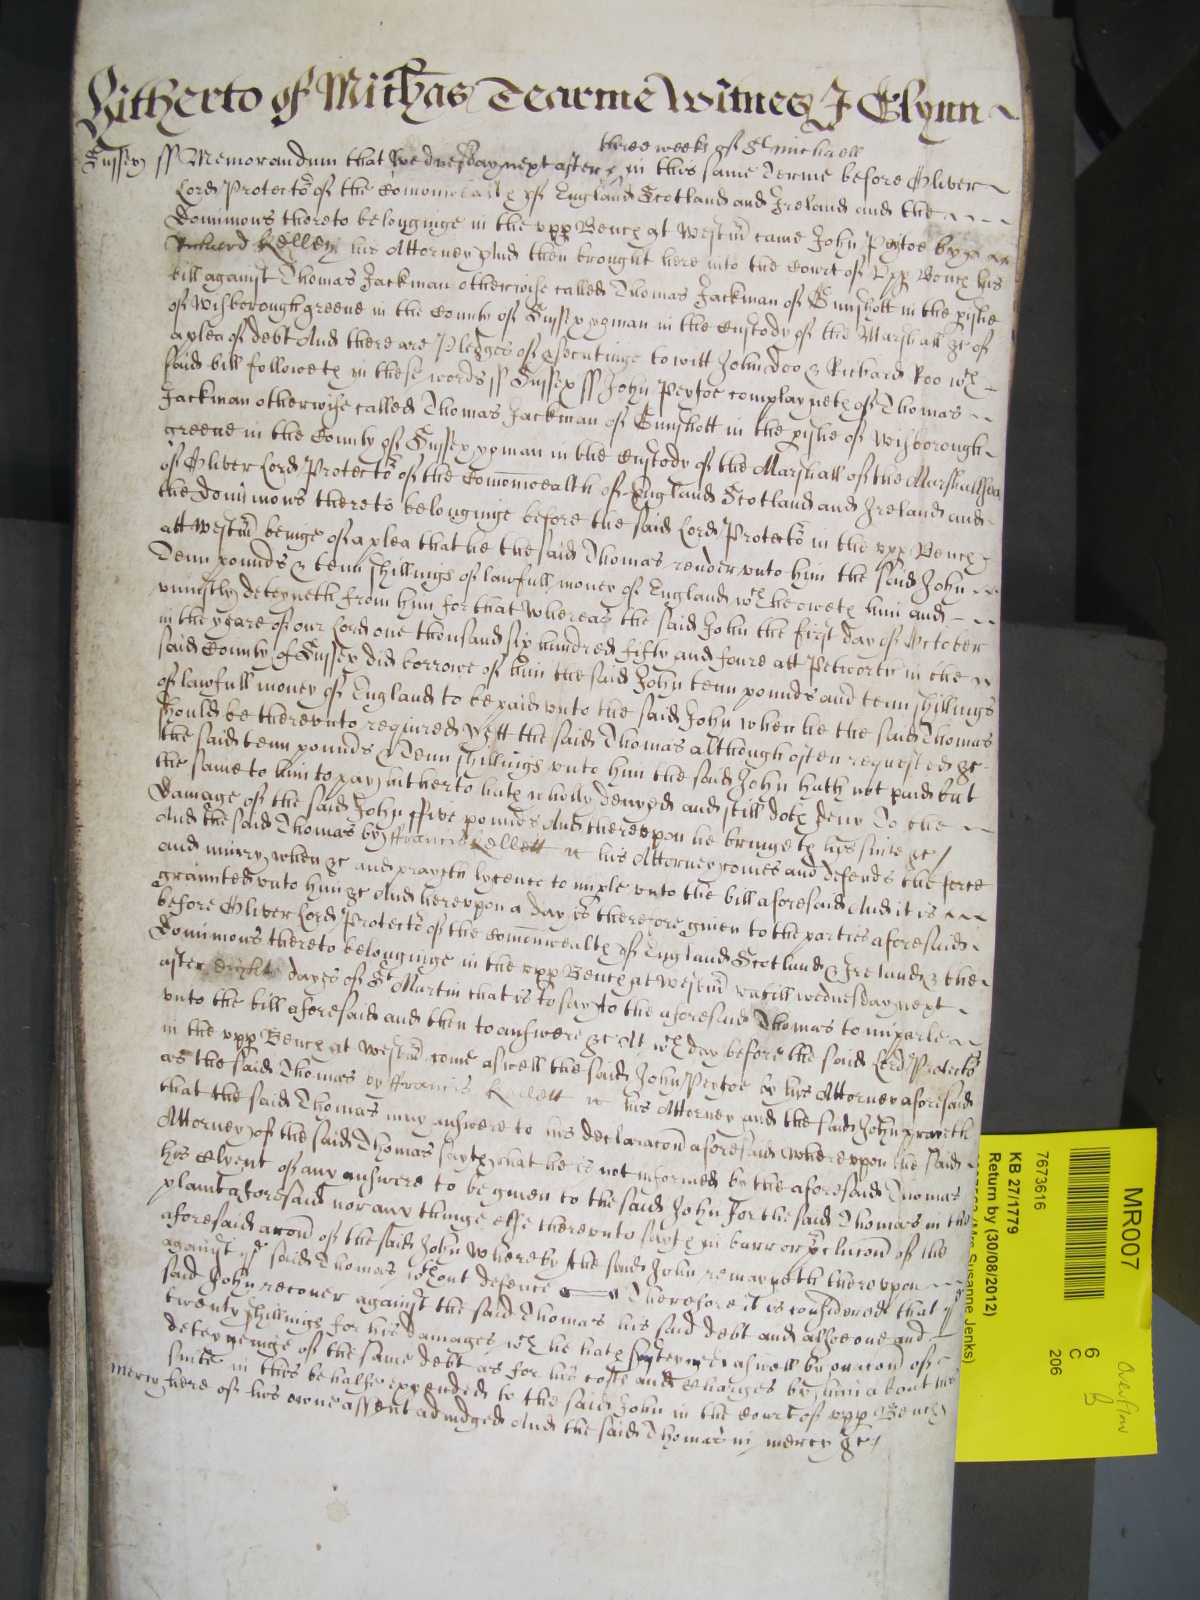 Hitherto of Michas Tearme Witnes J Glynn
three weeks of St Michaell
Sussex ss Memorandum that Wednesday next after in this same Terme before Oliver
Lord Protector of the Comonwealth of England Scotland and Ireland and the
Dominions thereto belonginge in the upp Bench at Westm came John Peytoe by
Richard Kelley his Attorney And then brought here into the Court of Upp Bench his
bill against Thomas Jackman otherwise called Thomas Jackman of Gunshott in the pishe
of Wisborough greene in the County of Sussex yeoman in the Custody of the Marshall &c of
a plea of debt And there are Pledges of psecutinge to witt John Doo & Richard Roo wch
said bill followeth in these words ss Sussex ss John Peytoe complayneth of Thomas
Jackman otherwise called Thomas Jackman of Gunshott in the pishe of Wisborough
greene in the County of Sussex yeoman in the Custody of the Marshall of the Marshallsea
of Oliver Lord Protector of the Comonwealth of England Scotland and Ireland and
the Dominions thereto belonginge before the said Lord Protector in the upp Bench
att Westm beinge of a plea that he the said Thomas render unto him the said John
Tenn pounds & tenn shillings of lawfull money of England wch he oweth him and
uniustly deteyneth from him for that Whereas the said John the first day of October
in the yeare of our Lord one thousand six hundred fifty and foure att Petworth in the
said County of Sussex did borrowe of him the said John tenn pounds and tenn shillings
of lawfull money of England to be paid unto the said John when he the said Thomas
should be thereunto required Yett the said Thomas although often requested &c
the said tenn pounds & Tenn shillings unto him the said John hath not paid but
the same to him to pay hitherto hath wholly denyed and still doth deny To the
Damage of the said John ffive pounds And thereupon he bringeth his suite &c
And the said Thomas by ffrancis Kellett his Attorney comes and defends the force
and iniury when &c and prayeth lycence to imple unto the bill aforesaid And it is
graunted unto him &c And hereupon a day is therefore given to the parties aforesaid
before Oliver Lord Protector of the Comonwealth of England Scotland & Ireland & the
Dominions thereto belonginge in the upp Bench at Westm untill wednesday next
after eight dayes of St Martin that is to say to the aforesaid Thomas to imparle
unto the bill aforesaid and then to answere &c At wch day before the said Lord Protector
in the upp Bench at Westm come aswell the said John Peytoe by his Attorney aforesaid
as the said Thomas by ffrancis Kellett his Attorney and the said John prayeth
that the said Thomas may answere to his declaracon aforesaid Whereupon the said
Attorney of the said Thomas sayth that he is not informed by the aforesaid Thomas
his Clyent of any answere to be given to the said John for the said Thomas in the
plaint aforesaid nor any thinge else thereunto sayth in barr or pclucon of the
aforesaid accon of the said John Whereby the said John remayneth thereuppon
against ye said Thomas wthout defence Therefore it is considered that ye
said John recover against the said Thomas his said debt and alsoe one and
twenty shillings for his damages wch he hath susteyned aswell by occacon of
deteyneinge of the same debt as for his costs and Charges by him about his
suite in this behalfe expended to the said John in the Court of upp Bench
mercy here of his owne assent adiudged And the said Thomas in mercy &c
MR007
7673616
6
C
206
Overflow
B
KB 27/1779
Return by (30/08/2012)
(Mrs Susanne Jenks)